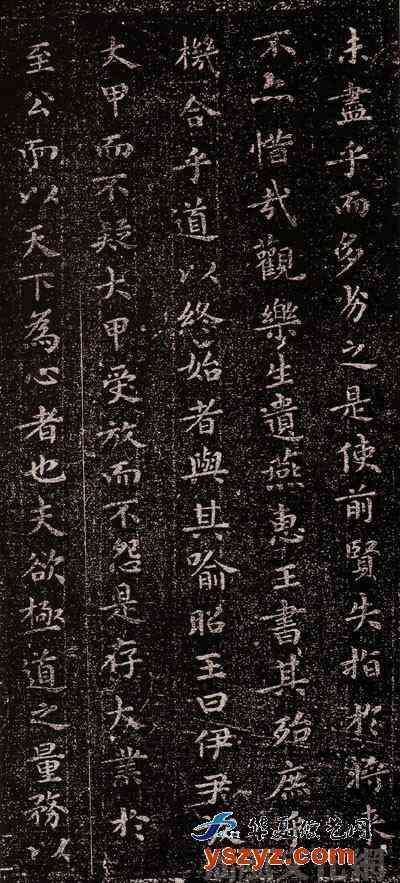 未盡乎而多劣之是使前賢失指於將來
不亦惜哉觀樂生遺燕惠王書其殆庶乎
機合乎道以終始者與其喻昭王曰伊尹放
大甲而不疑大甲受放而不怨是存大業於
至公而以天下為心者也夫欲極道之量務以
华夏综艺网
yszyz.com